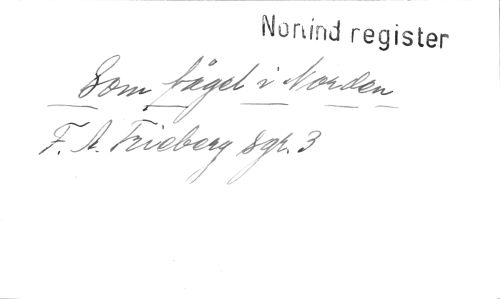 Nonind register
Som fågel i Norden
F. A. Frieberg Sgr. 3